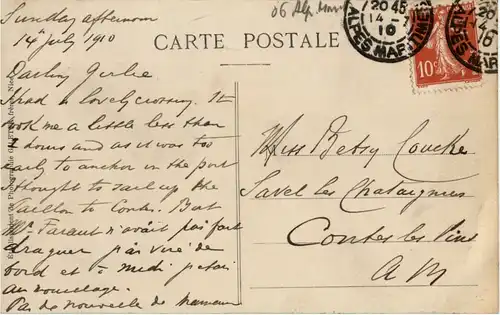 Sunday afternoon
14th July 1910
06 Alp. Marit
CARTE POSTALE
20 45
14 - 7
10
ALPES MARITIMES
10c
Darling Girlie
I had a lovely crossing. It
took me a little less than
2 hours and as it was too
early to anchor in the port
I thought to sail up the
Paillon to Contes. But
Mr. Faraut n'avait pas fait
draguer j'ai viré de
bord et à midi j'étais
au mouillage.
Pas de nouvelle de
Miss Betsy
Les Chataigniers
Contes les Pins
A M